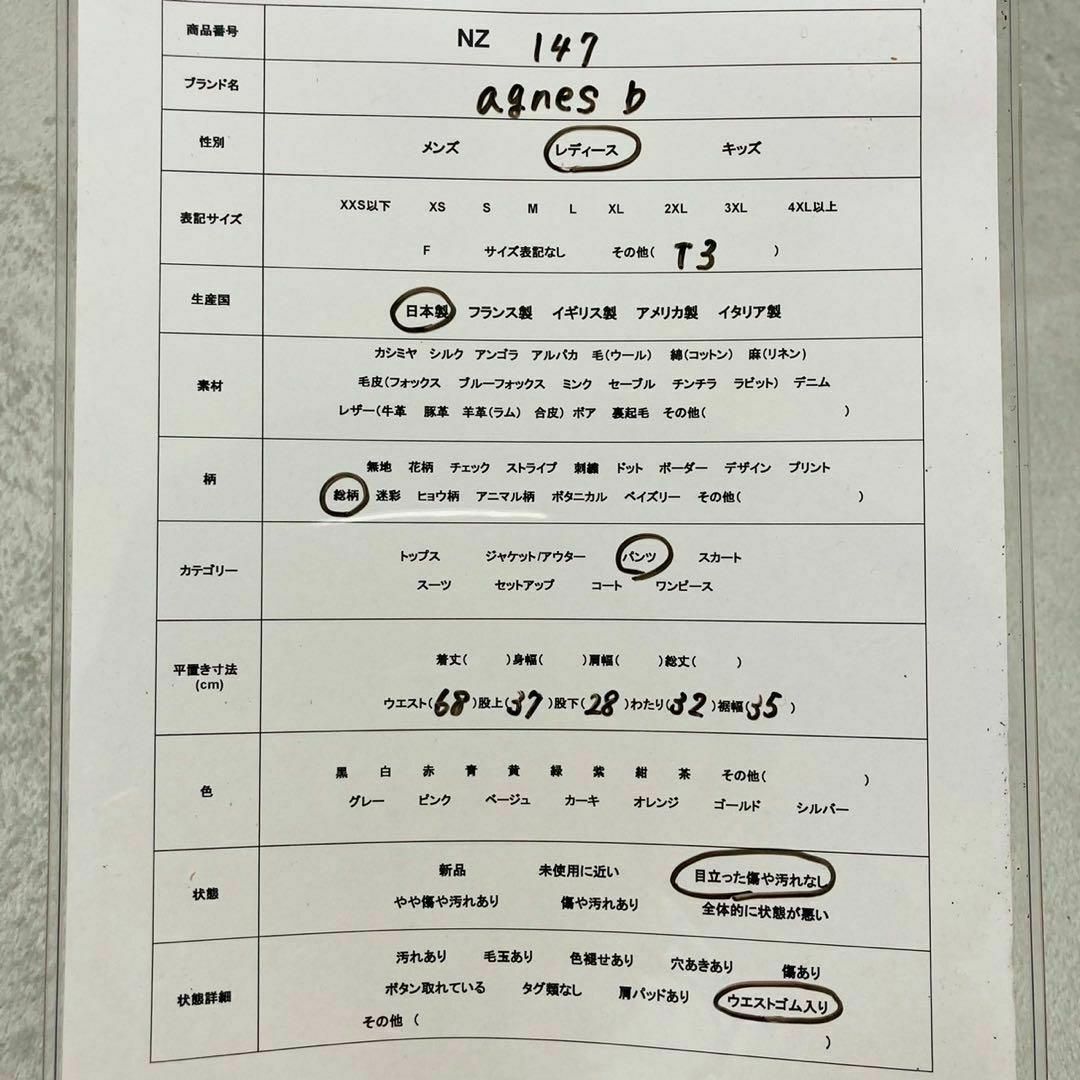 商品番号 NZ 147
ブランド名 agnes b
性別 メンズ レディース キッズ
表記サイズ
XXS以下 XS S M L XL 2XL 3XL 4XL以上
F サイズ表記なし その他( T3 )
生産国 日本製 フランス製 イギリス製 アメリカ製 イタリア製
素材
カシミヤ シルク アンゴラ アルパカ 毛(ウール) 綿(コットン) 麻(リネン)
毛皮(フォックス ブルーフォックス ミンク セーブル チンチラ ラビット) デニム
レザー(牛革 豚革 羊革(ラム) 合皮) ボア 裏起毛 その他( )
柄
無地 花柄 チェック ストライプ 刺繍 ドット ボーダー デザイン プリント
総柄 迷彩 ヒョウ柄 アニマル柄 ボタニカル ペイズリー その他( )
カテゴリー
トップス ジャケット/アウター パンツ スカート
スーツ セットアップ コート ワンピース
平置き寸法
(cm)
着丈( )身幅( )肩幅( )総丈( )
ウエスト(68)股上(37)股下(28)わたり(32)裾幅(35)
色
黒 白 赤 青 黄 緑 紫 紺 茶 その他( )
グレー ピンク ベージュ カーキ オレンジ ゴールド シルバー
状態
新品 未使用に近い 目立った傷や汚れなし
やや傷や汚れあり 傷や汚れあり 全体的に状態が悪い
状態詳細
汚れあり 毛玉あり 色褪せあり 穴あきあり 傷あり
ボタン取れている タグ類なし 肩パッドあり ウエストゴム入り
その他 ( )